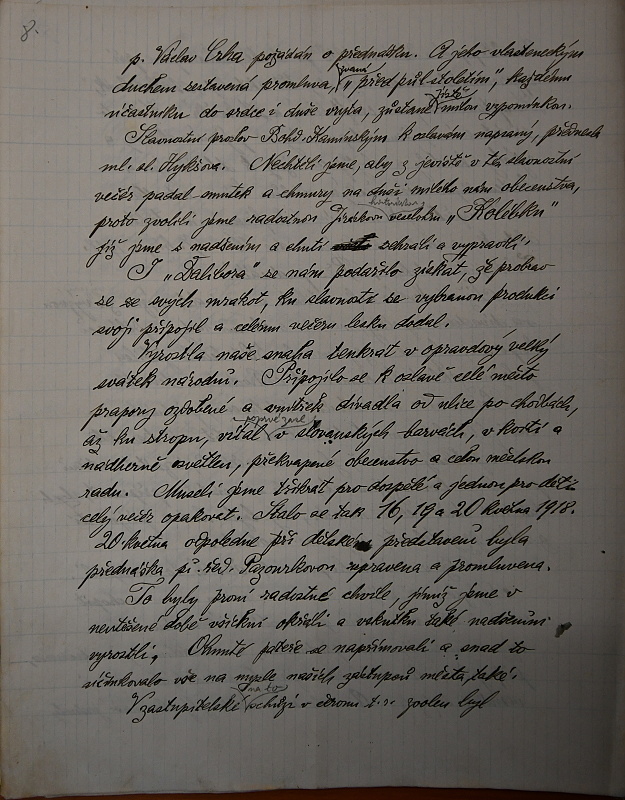 8.
p. Václav Crha požádán o přednášku. A jeho vlasteneckým
duchem sestavená promluva, zvaná „před půl stoletím", každému
účastníku do srdce i duše vryta, zůstane jistě milou vzpomínkou.
Slavnostní proslov Bohd. Kaminským k oslavám napsaný, přednesla
ml. sl. Hykšova. Nechtěli jsme, aby z jeviště v ten slavnostní
večer padal smutek a chmury na duši milého nám obecenstva,
proto zvolili jsme radostnou Jiráskovu veselohru „Kolébku"
již jsme s nadšením a chutí sehráli a vypravili.
I „Dalibora" se nám podařilo získat, že probrav
se ze svých mrákot, ku slavnosti se vybranou produkcí
svojí připojil a celému večeru lesku dodal.
Vyrostla naše snaha tenkrát v opravdový velký
svátek národní. Připojilo se k oslavě celé město
prapory ozdobené a vnitřek divadla od ulice po chodbách,
až ku stropu, vítal poprvé zase v slovanských barvách, v kvítí a
nádherně osvětlen, překvapené obecenstvo a celou městskou
radu. Museli jsme třikrát pro dospělé a jednou pro děti
celý večer opakovat. Stalo se tak 16, 19 a 20 května 1918.
20 května odpoledne při dětském představení byla
přednáška pí. řed. Pazourkovou upravena a promluvena.
To byly první radostné chvíle, jimiž jsme v
neutěšené době všichni okřáli a vskutku také nadšením
vyrostli. Ohnuté páteře se napřimovali a snad to
účinkovalo vše na mysle našich zástupců města také.
V zastupitelské na to schůzi v červnu t. r. zvolen byl